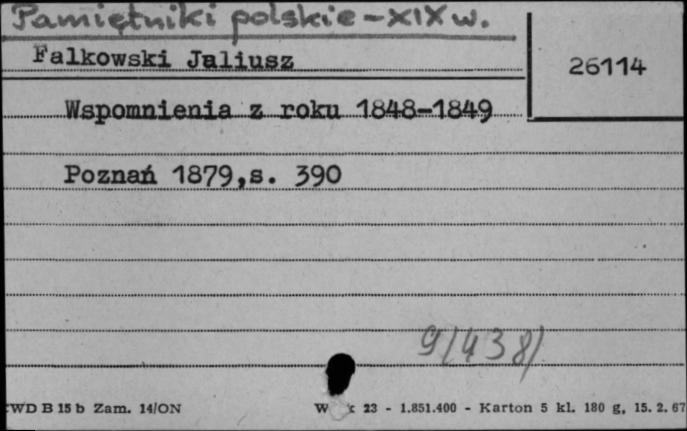 Pamiętniki polskie - XIX w.
Falkowski Jaliusz
26114
Wspomnienia z roku 1848-1849
Poznań 1879,s. 390
9/438/
WD B 15 b Zam. 14/ON
23 - 1.851.400 - Karton 5 kl. 180 g, 15. 2. 67